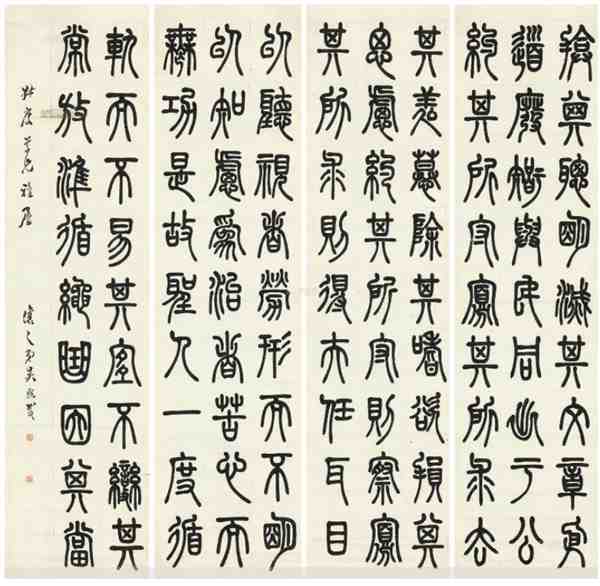 掩其聰明滅其文章依
道廢智與民同出于公
約其所守寡其所求去
其誘慕除其嗜欲損其
思慮約其所守則察寡
其所求則得夫任耳目
以聽視者勞形而不明
以知慮爲治者苦心而
無功是故聖人一度循
軌而不易其宜不變其
常放準循繩曲因其當
尊兄雅屬 讓之弟吳熙載